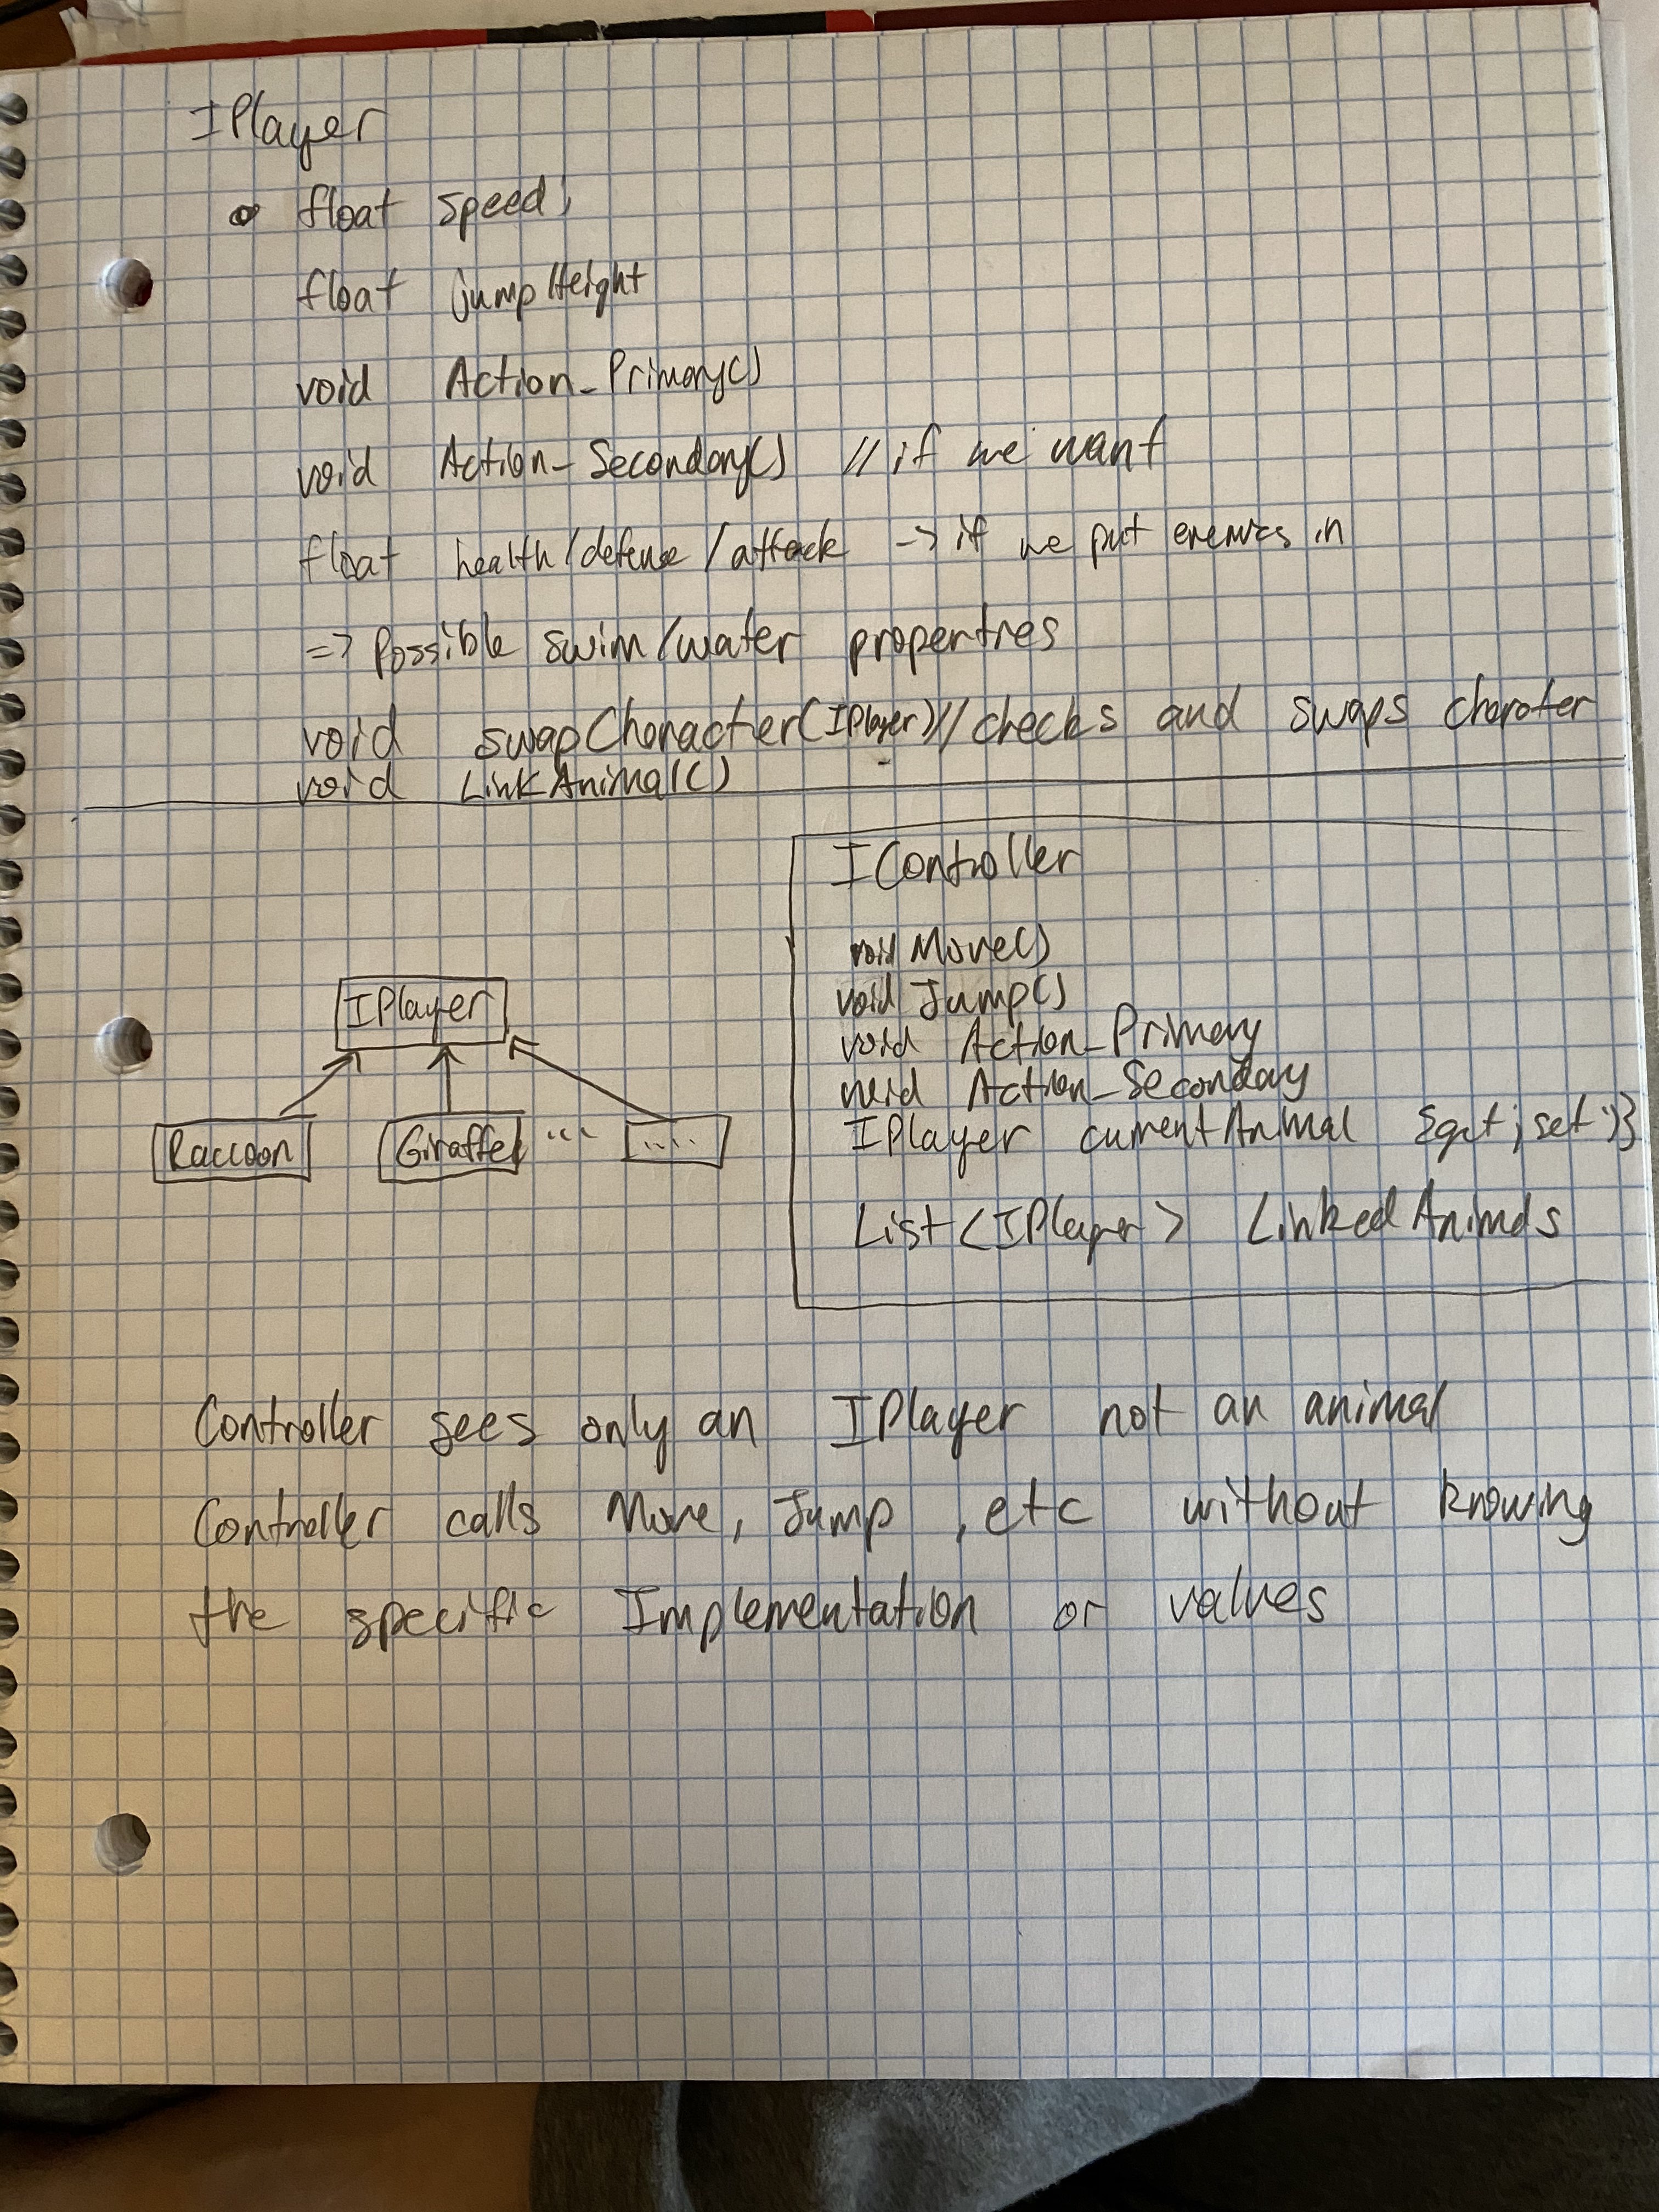 IPlayer
float speed;
float jumpHeight
void Action_Primary()
void Action_Secondary() // if we want
float health/defense/attack -> if we put enemies in
=> Possible swim/water properties
void swapCharacter(IPlayer) // checks and swaps charater
void LinkAnimal()
IController
void Move()
void Jump()
void Action_Primary
void Action_Seconday
IPlayer currentAnimal {get; set;}
List<IPlayer> LinkedAnimals
IPlayer
Raccoon Giraffe ... .....
Controller sees only an IPlayer not an animal
Controller calls Move, Jump, etc without knowing
the specific Implementation or values